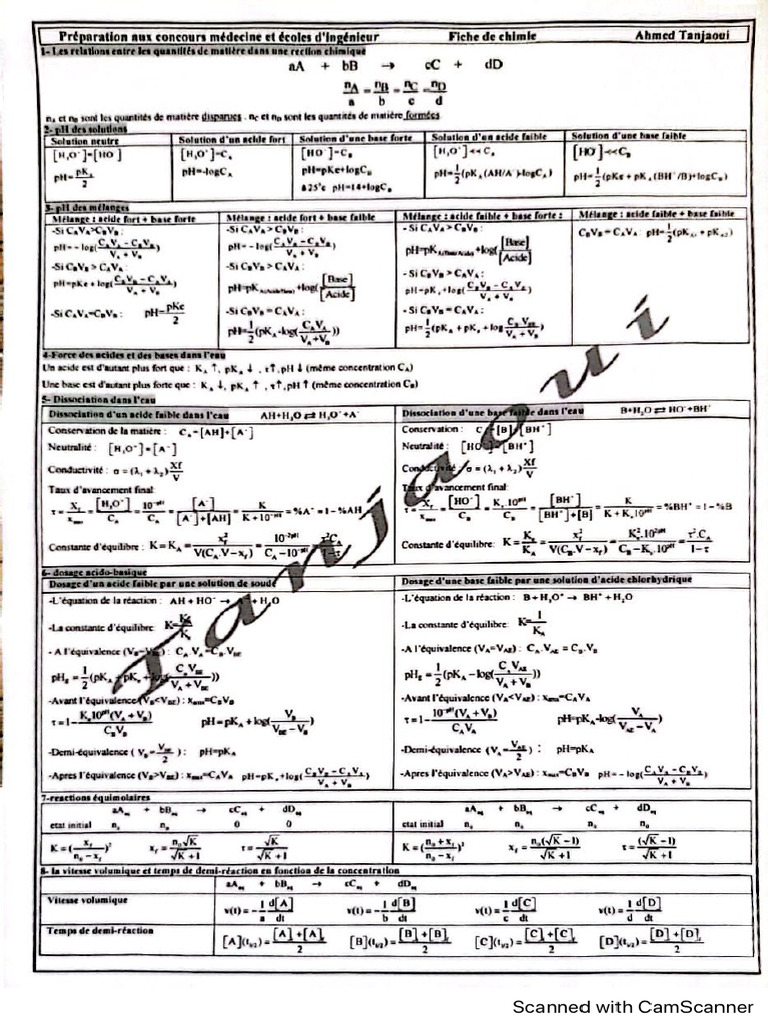 Préparation aux concours médecine et écoles d'ingénieur Fiche de chimie Ahmed Tanjaoui
1- Les relations entre les quantités de matière dans une rection chimique
aA + bB → cC + dD
nA/a = nB/b = nC/c = nD/d
nA et nB sont les quantités de matière disparues . nC et nD sont les quantités de matière formées
2- pH des solutions
Solution neutre Solution d'un acide fort Solution d'une base forte Solution d'un acide faible Solution d'une base faible
[H3O+]=[HO-] [H3O+]=CA [HO-]=CB [H3O+]<< CA [HO-]<<CB
pH=pKe/2 pH=-logCA pH=pKe+logCB pH=1/2(pKA(AH/A-)-logCA) pH=1/2(pKe+pKA(BH+/B)+logCB)
à 25°c pH=14+logCB
3- pH des mélanges
Mélange : acide fort + base forte Mélange : acide fort + base faible Mélange : acide faible + base forte : Mélange : acide faible + base faible
-Si CAVA>CBVB :
pH=-log((CAVA-CBVB)/(VA+VB))
-Si CBVB > CAVA :
pH=pKe+log((CBVB-CAVA)/(VA+VB))
-Si CAVA=CBVB : pH=pKe/2
-Si CAVA> CBVB :
pH=-log((CAVA-CBVB)/(VA+VB))
-Si CBVB > CAVA :
+log([Base]/[Acide])
-Si CBVB = CAVA :
pH=1/2(pKA-log(CAVA/(VA+VB)))
- Si CAVA > CBVB :
+log([Base]/[Acide])
- Si CBVB > CAVA :
pH=pKe+log((CBVB-CAVA)/(VA+VB))
- Si CBVB = CAVA :
pH=1/2(pKA+pKe+log(CBVB/(VA+VB)))
CBVB = CAVA : pH=1/2(pKA1+pKA2)
4-Force des acides et des bases dans l'eau
Un acide est d'autant plus fort que : KA ↑, pKA ↓ , τ↑,pH ↓ (même concentration CA)
Une base est d'autant plus forte que : KA ↓, pKA ↑ , τ↑,pH ↑ (même concentration CB)
5- Dissociation dans l'eau
Dissociation d'un acide faible dans l'eau AH+H2O ⇄ H3O++A-
Conservation de la matière : CA=[AH]+[A-]
Neutralité : [H3O+]=[A-]
Conductivité : σ=(λ1+λ2)Xf/V
Taux d'avancement final:
τ=Xf/xmax=[H3O+]/CA=10-pH/CA=[A-]/([A-]+[AH])=K/(K+10-pH)=%A-=1-%AH
Constante d'équilibre : K=KA=xf²/(V(CA.V-xf))=10-2pH/(CA-10-pH)=τ²CA/(1-τ)
Dissociation d'une base faible dans l'eau B+H2O ⇄ HO-+BH+
Conservation : C =[B]+[BH+]
Neutralité : [HO-]=[BH+]
Conductivité : σ=(λ1+λ2)Xf/V
Taux d'avancement final:
τ=Xf/xmax=[HO-]/CB=Ke.10pH/CB=[BH+]/([BH+]+[B])=K/(K+Ke.10pH)=%BH+=1-%B
Constante d'équilibre: K=Ke/KA=xf²/(V(CB.V-xf))=Ke².10²pH/(CB-Ke.10pH)=τ².CA/(1-τ)
6- dosage acido-basique
Dosage d'un acide faible par une solution de soude
-L'équation de la réaction : AH+HO- → H2O
-La constante d'équilibre: K=KA/Ke
- A l'équivalence (VB=VBE) : CA.VA=CB.VBE
pHE=1/2(pKA+pKe+log(CBVBE/(VA+VBE)))
-Avant l'équivalence(VB<VBE) : xmax=CBVB
τ=1-Ke10pH(VA+VB)/(CBVB) pH=pKA+log(VB/(VBE-VB))
-Demi-équivalence ( VB=VBE/2 ) : pH=pKA
-Apres l'équivalence (VB>VBE) : xmax=CAVA pH=pKe+log((CBVB-CAVA)/(VA+VB))
Dosage d'une base faible par une solution d'acide chlorhydrique
-L'équation de la réaction : B+H3O+ → BH++H2O
-La constante d'équilibre: K=1/KA
-A l'équivalence (VA=VAE) : CA.VAE = CB.VB
pHE=1/2(pKA-log(CAVAE/(VA+VB)))
-Avant l'équivalence (VA<VAE) : xmax=CAVA
τ=1-10-pH(VA+VB)/(CAVA) pH=pKA-log(VA/(VAE-VA))
-Demi-équivalence (VA=VAE/2) : pH=pKA
-Apres l'équivalence (VA>VAE) : xmax=CBVB pH=-log((CAVA-CBVB)/(VA+VB))
7-reactions équimolaires
aAaq + bBaq → cCaq + dDaq aAaq + bBaq → cCaq + dDaq
etat initial n0 n0 0 0 etat initial n0 n0 n0 n0
K=(xf/(n0-xf))² xf=n0√K/(√K+1) τ=√K/(√K+1) K=((n0+xf)/(n0-xf))² xf=n0(√K-1)/(√K+1) τ=(√K-1)/(√K+1)
8- la vitesse volumique et temps de demi-réaction en fonction de la concentration
aAaq + bBaq → cCaq + dDaq
Vitesse volumique v(t)=-1/a d[A]/dt v(t)=-1/b d[B]/dt v(t)=1/c d[C]/dt v(t)=1/d d[D]/dt
Temps de demi-réaction [A](t1/2)=([A]i+[A]f)/2 [B](t1/2)=([B]i+[B]f)/2 [C](t1/2)=([C]i+[C]f)/2 [D](t1/2)=([D]i+[D]f)/2
Tanjaoui
Scanned with CamScanner